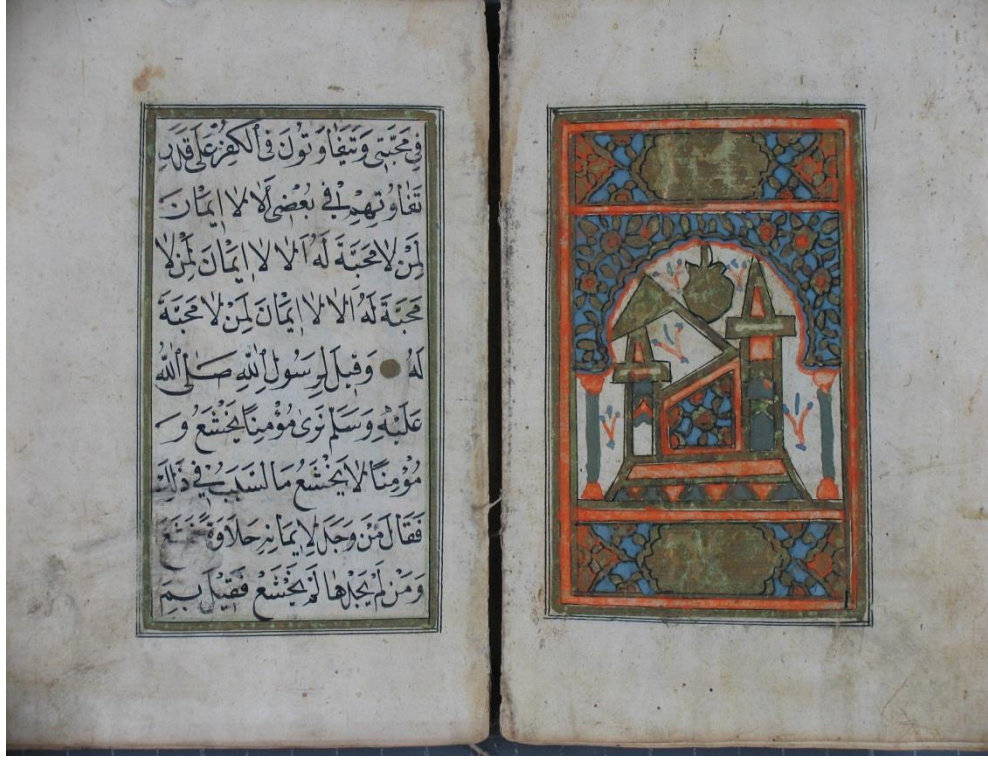 فِي مَحَبَّتِي وَيَتَفَاوَتُونَ فِي الْكُفْرِ عَلَى قَدَرِ
تَفَاوُتِهِمْ فِي بُغْضِي أَلَا لَا إِيمَانَ
لِمَنْ لَا مَحَبَّةَ لَهُ أَلَا لَا إِيمَانَ لِمَنْ لَا
مَحَبَّةَ لَهُ أَلَا لَا إِيمَانَ لِمَنْ لَا مَحَبَّةَ
لَهُ وَقِيلَ لِرَسُولِ اللّٰهِ صَلَّى اللّٰهُ
عَلَيْهِ وَسَلَّمَ نَرَى مُؤْمِنًا يَخْشَعُ وَ
مُؤْمِنًا لَا يَخْشَعُ مَا السَّبَبُ فِي ذَالِكَ
فَقَالَ مَنْ وَجَدَ لِإِيمَانِهِ حَلَاوَةً خَشَعَ
وَمَنْ لَمْ يَجِدْهَا لَمْ يَخْشَعْ فَقِيلَ بِمَ